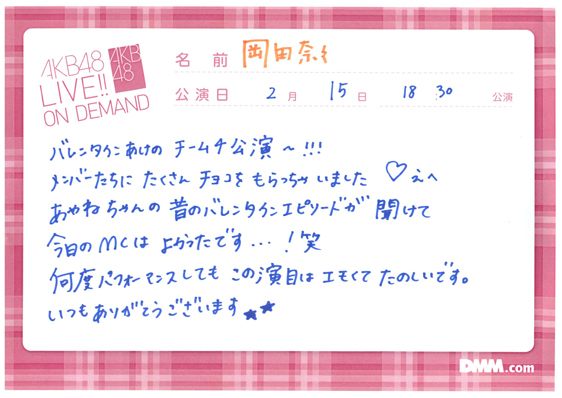 AKB48
LIVE!!
ON DEMAND
AKB
48
名前 岡田奈々
公演日 2月 15日 18:30 公演
バレンタインあけの チーム4公演〜!!!
メンバーたちに たくさん チョコを もらっちゃいました ♡ えへ
あやねちゃんの 昔のバレンタインエピソードが 聞けて
今日のMCは よかったです…!笑
何度パフォーマンスしても この演目は エモくて たのしいです。
いつもありがとうございます★★
DMM.com